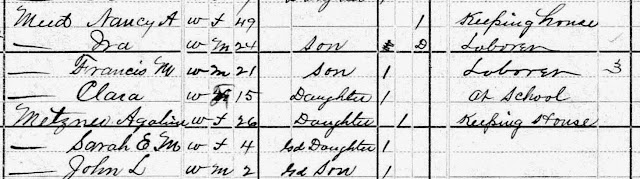 Meed Nancy A w F 49 1 Keeping house
— Ira w M 24 Son D Laborer
— Francis M w M 21 Son 1 Laborer 3
— Clara w F 15 Daughter 1 At School
Metzner Agaline w F 26 Daughter 1 Keeping House
— Sarah E M w F 4 Gd Daughter 1
— John L w M 2 Gd Son 1